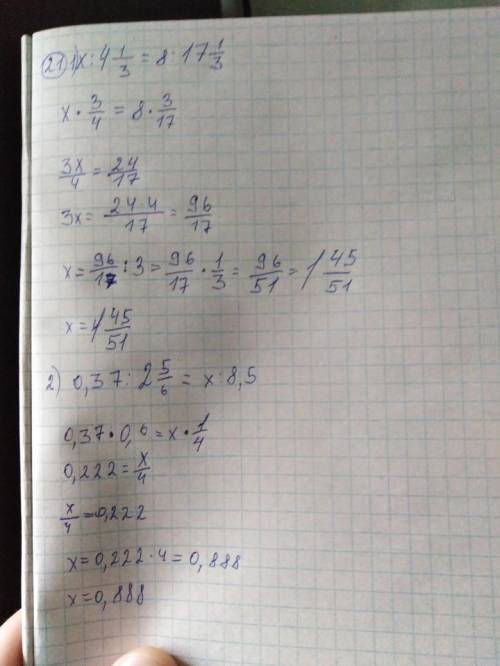 21 1) x : 4 1/3 = 8 : 17 1/3
x · 3/4 = 8 · 3/17
3x/4 = 24/17
3x = 24·4/17 = 96/17
x = 96/17 : 3 = 96/17 · 1/3 = 96/51 = 1 45/51
x = 1 45/51
2) 0,37 : 2 5/6 = x : 8,5
0,37 · 0,6 = x · 1/4
0,222 = x/4
x/4 = 0,222
x = 0,222 · 4 = 0,888
x = 0,888